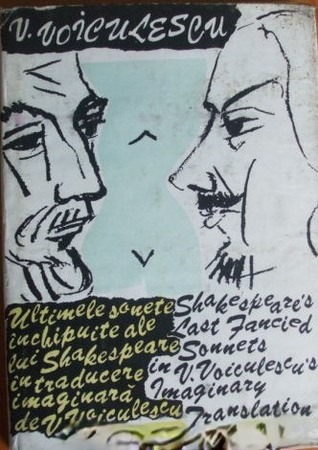 V. VOICULESCU
Ultimele sonete
închipuite ale
lui Shakespeare
în traducere
imaginară
de V. Voiculescu
Shakespeare's
Last Fancied
Sonnets
in V. Voiculescu's
Imaginary
Translation